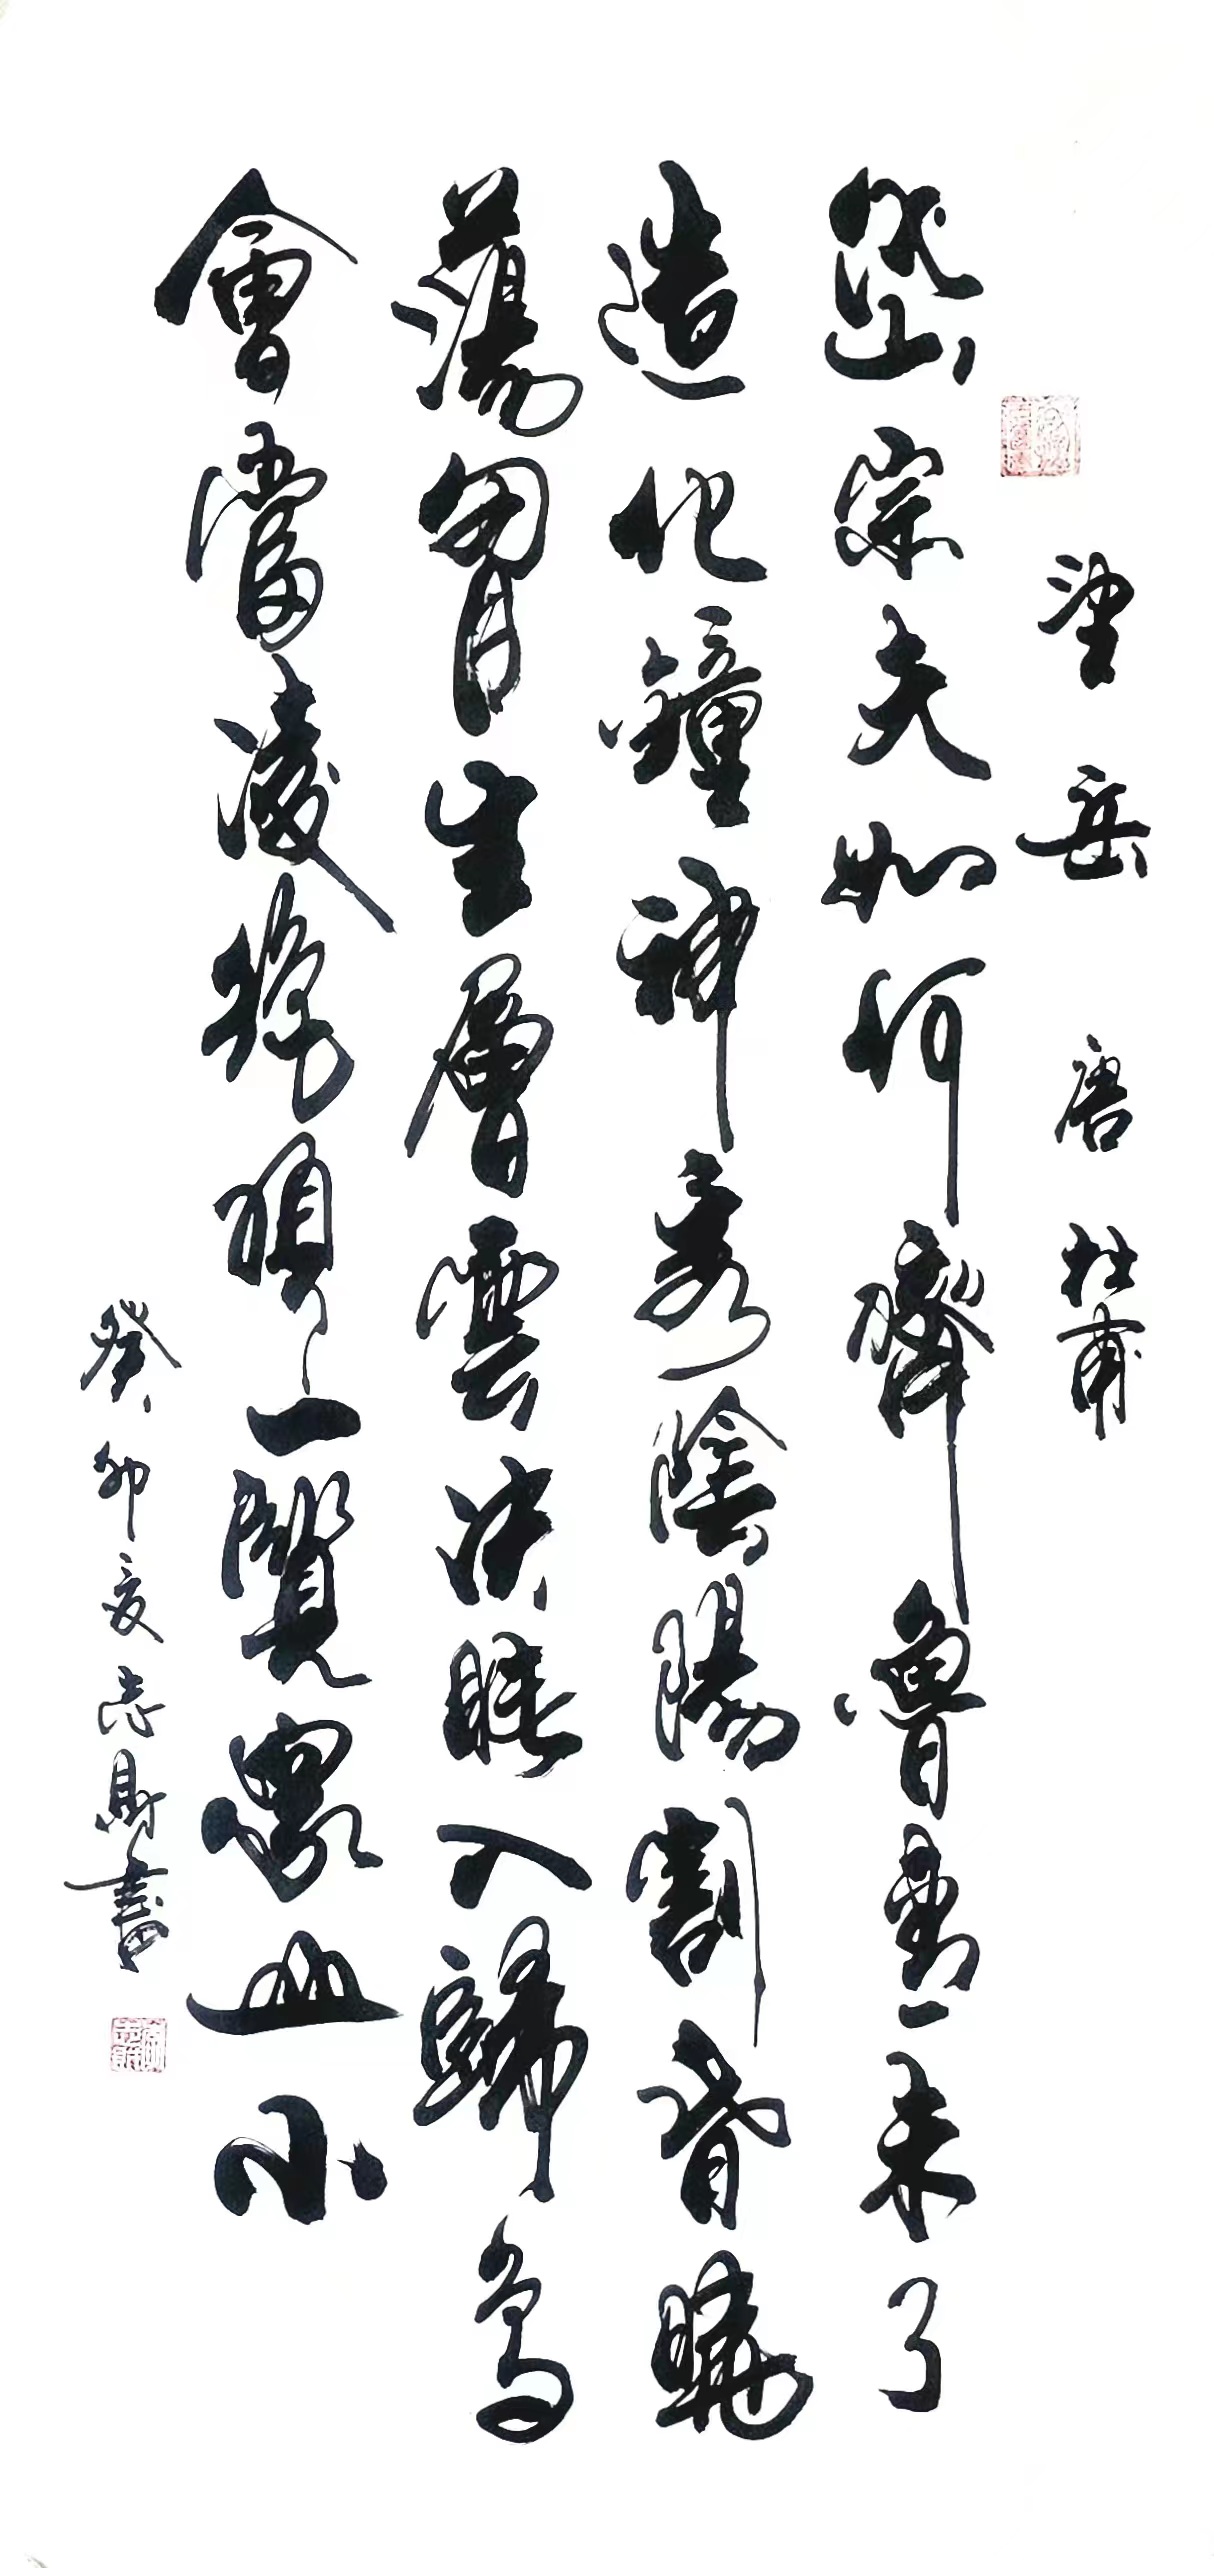 望岳 唐 杜甫
岱宗夫如何齊魯青未了
造化鐘神秀陰陽割昏曉
蕩胷生層雲决眦入歸鳥
會當凌絶頂一覽衆山小
癸卯夏志財書